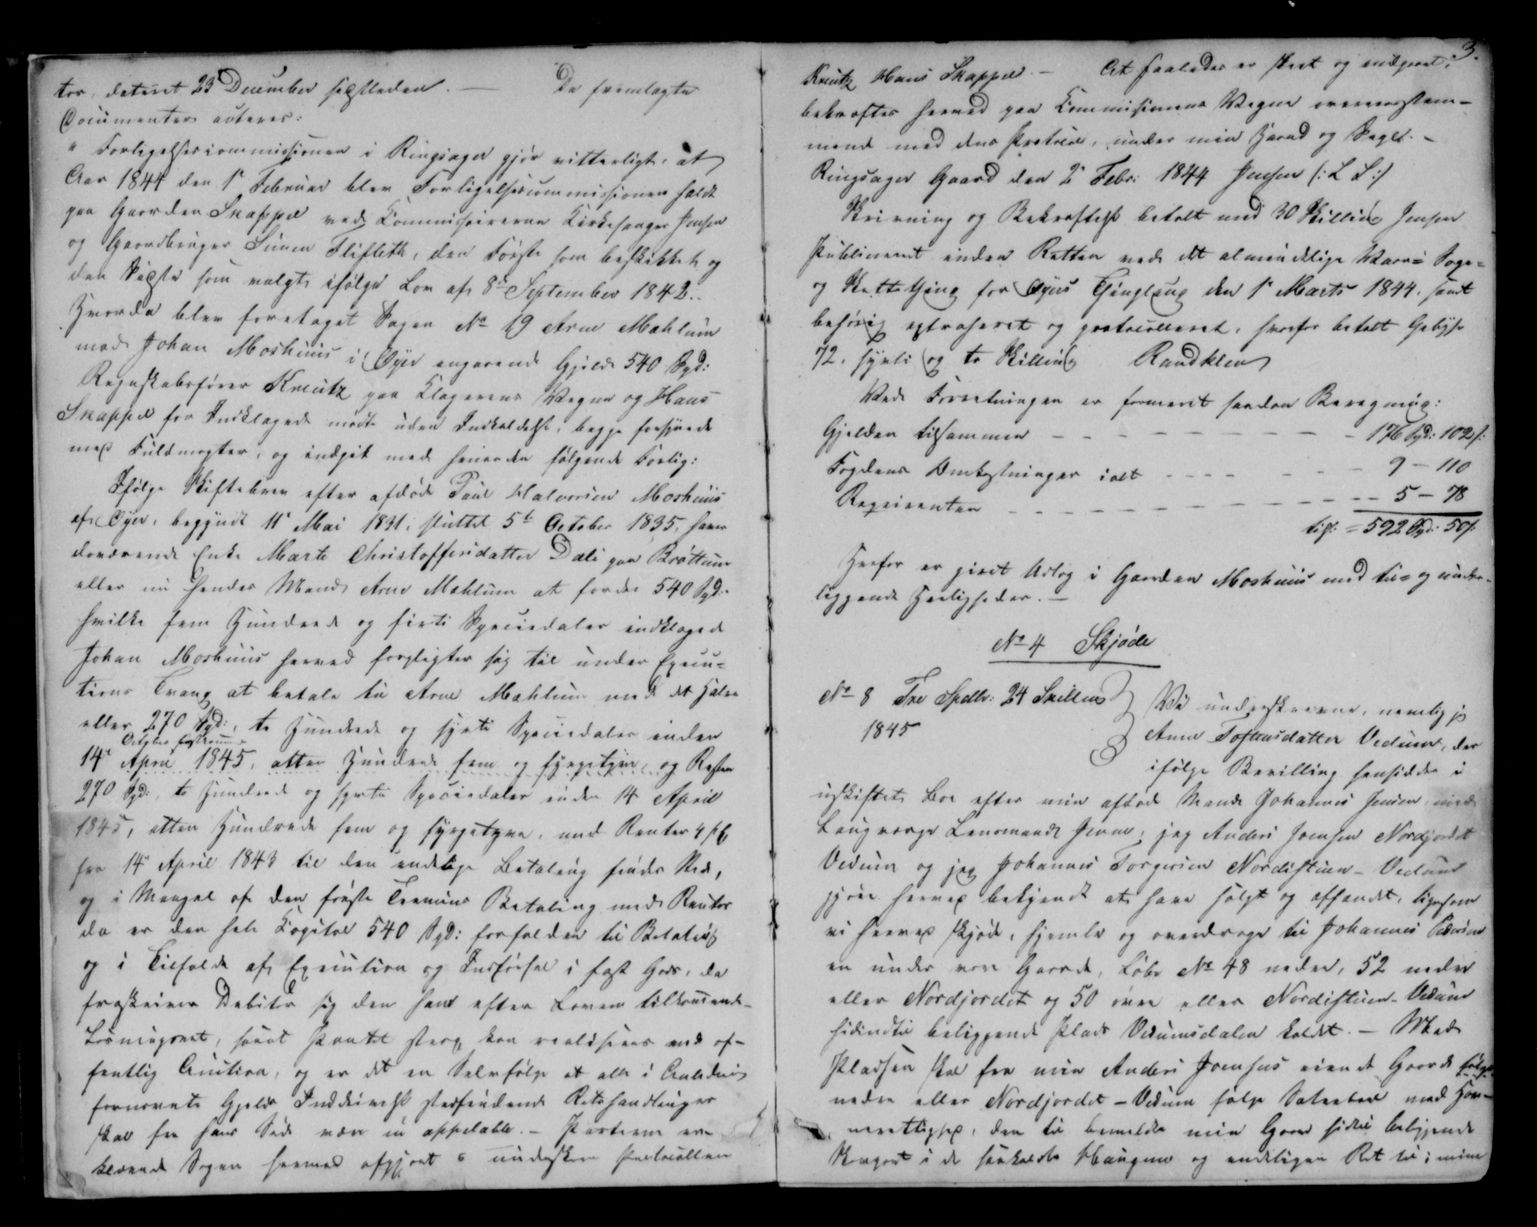 tor, dateret 23 December sidstleden. — De fremlagte
Documenter acteres:
"Forligelsescommissionen i Ringsager gjør vitterligt, at
Aar 1844 den 1ste Februar blev Forligelsescommissionen holdt
paa Gaarden Skappel ved Commissairerne Kirkesanger Jensen
og Gaardbruger Simen Flifleth, den Første som beskikket og
den Sidste som valgt ifølge Lov af 8de September 1842.
Hvorda blev foretaget Sagen No 19 Arne Mæhlum
mod Johan Moshuus i Øyer angaaende Gjeld 540 Spd:
Regnskabsfører Kreutz paa Klagerens Vegne og Hans
Skappel for Indklagede mødte uden Indkaldelse, begge forsynede
med Fuldmagter, og indgik med hinanden følgende Forlig:
Ifølge Skiftebrev efter afdøde Poul Halvorsen Moshuus
af Øyer, begyndt 11te Mai 1831, sluttet 5te October 1835, haver
daværende Enke Marte Christoffersdatter Dali paa Brøttum
eller nu hendes Mand Arne Mæhlum at fordre 540 Spd:
hvilke fem Hundrede og firti Speciedaler indklagede
Johan Moshuus herved forpligter sig til under Execu-
tions Tvang at betale til Arne Mæhlum med det Halve
eller 270 Spd:, to Hundrede og sytti Speciedaler inden
14de April 1845, atten Hundrede fem og fyrgetyve, og Resten
270 Spd:, to Hundrede og sytti Speciedaler inden 14 April
1845, atten Hundrede fem og fyrgetyve, med Renter 4 pC
fra 14de April 1843 til den endelige Betaling finder Sted,
og i Mangel af den første Termins Betaling med Renter
da er den hele Capital 540 Spd: forfalden til Betaling
og i Tilfælde af Execution og Indførsel i fast Gods, da
fraskriver Debitor sig den ham efter Loven tilkommende
Løsningsret, saaat Pantet strax kan realiseres ved of-
fentlig Auction, og er det en Selvfølge at alle i Anledning
fornævnte Gjelds Inddrivelse stedfindende Retshandlinger
skal fra hans Side være in appelable. — Parterne er-
klærede Sagen hermed afgjort og underskrev Protocollen
3.
Kreutz Hans Skappel. — At saaledes er skeet og indgaaet,
bekræftes herved paa Commissionens Vegne overeensstem-
mende med dens Protocol, under min Haand og Segl. —
Ringsager Gaard den 2 Febr: 1844 Jensen (: L S :)
Skrivning og Bekræftelse betalt med 30 Skilling Jensen
Publiceret inden Retten ved det almindelige Vaar- Sage-
og Skatteting for Øyers Thinglaug den 1ste Marts 1844, samt
behørig extraheret og protocolleret, herfor betalt Gebyhr
72, sytti og to Skilling Randklev
Ved Forretningen er formeret saadan Beregning:
Gjelden tilsammen — — — — 176 Spd: 102 s:
Fogdens Omkostninger ialt — — — — 9 — 110
Reqvirenten — — — — 5 — 78
tils: = 592 Spd: 50 s.
Herfor er givet Udlæg i Gaarden Moshuus med til- og under-
liggende Herligheder. —
No 4 Skjøde
No 8 Tre Spdlr: 24 Skilling
1845
Vi underskrevne, nemlig jeg
Anne Tostensdatter Vedum, der
ifølge Bevilling hensidder i
uskiftet Boe efter min afdøde Mand Johannes Jensen, med
Laugværge Lensmand Jevne, jeg Anders Joensen Nordjordet
Vedum og jeg Johannes Torgersen Nordistuen-Vedum
gjøre herved bekjendt at have solgt og afhændet, ligesom
vi herved skjøde, hjemle og overdrage til Johannes Pedersen
en under vore Gaarde, Løbe No 48 nedre, 52 nedre
eller Nordjordet og 50 øvre eller Nordistuen-Vedum
hidindtil beliggende Plads Vedumsdalen kaldet. — Med
Pladsen skal fra min Anders Joensens eiende Gaard følge
nedre eller Nordjordet-Vedum følge Sæterbol med Hav-
nerettighed, den til bemeldte min Gaard hidtil beliggende
Skagert i de saakaldte Haugene og endeligen Ret til i mine